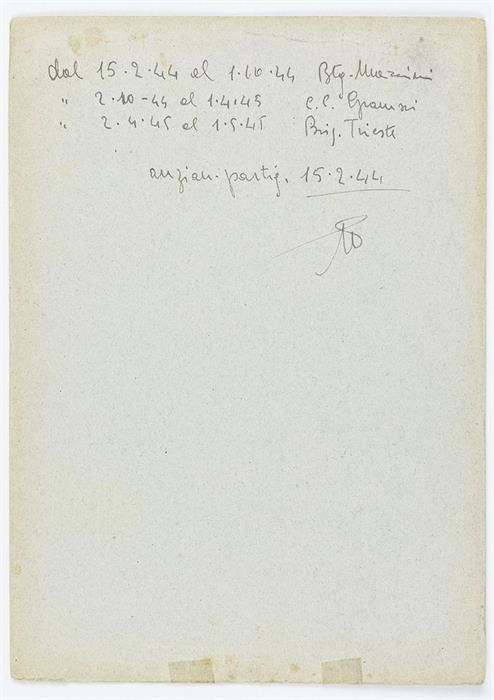 dal 15.2.44 al 1.10.44 Btg. Mazzini
" 2.10-44 al 1.4.45 C.C. Gramsci
" 2.4.45 al 1.5.45 Brig. Trieste
anzian. partig. 15.2.44